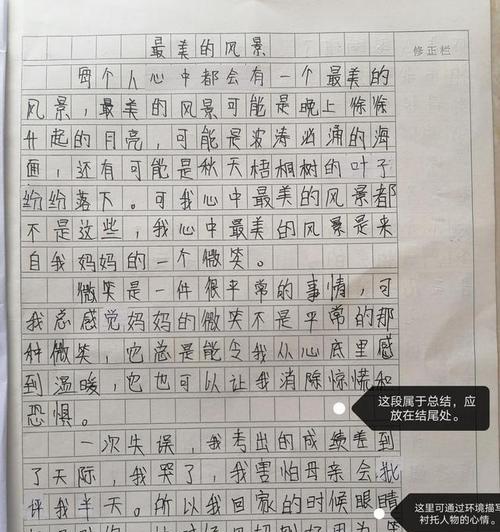 最美的风景
修正栏
每个人心中都会有一个最美的
风景，最美的风景可能是晚上徐徐
升起的月亮，可能是波涛汹涌的海
面，还有可能是秋天梧桐树的叶子
纷纷落下。可我心中最美的风景都
不是这些，我心中最美的风景是来
自我妈妈的一个微笑。
微笑是一件很平常的事情，可
我总感觉妈妈的微笑不是平常的那
种微笑，它总是能令我从心底里感
到温暖，它也可以让我消除惊慌和
恐惧。
这段属于总结，应
放在结尾处。
一次失误，我考出的成绩差到
了天际，我哭了，我害怕母亲会批
评我半天。所以我回家的时候眼睛
这里可通过环境描
衬托人物的心情。